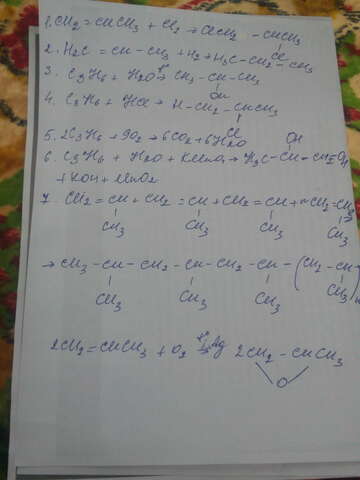 1. CH2=CHCH3 + Cl2 → ClCH2 - CHCH3
Cl
2. H2C = CH - CH3 + H2 → H3C - CH2 - CH3
3. C3H6 + H2O → CH3 - CH - CH3
OH
4. C3H6 + HCl → H - CH2 - CHCH3
Cl
5. 2C3H6 + 9O2 → 6CO2 + 6H2O
OH
6. C3H6 + H2O + KMnO4 → H3C - CH - CH2OH
+ KOH + MnO2
7. CH2 = CH + CH2 = CH + CH2 = CH + nCH2 = CH
CH3 CH3 CH3 CH3
→ CH3 - CH - CH2 - CH - CH2 - CH - (CH2 - CH
CH3 CH3 CH3 CH3 )n
2CH2 = CHCH3 + O2 Ag 2CH2 - CHCH3
O